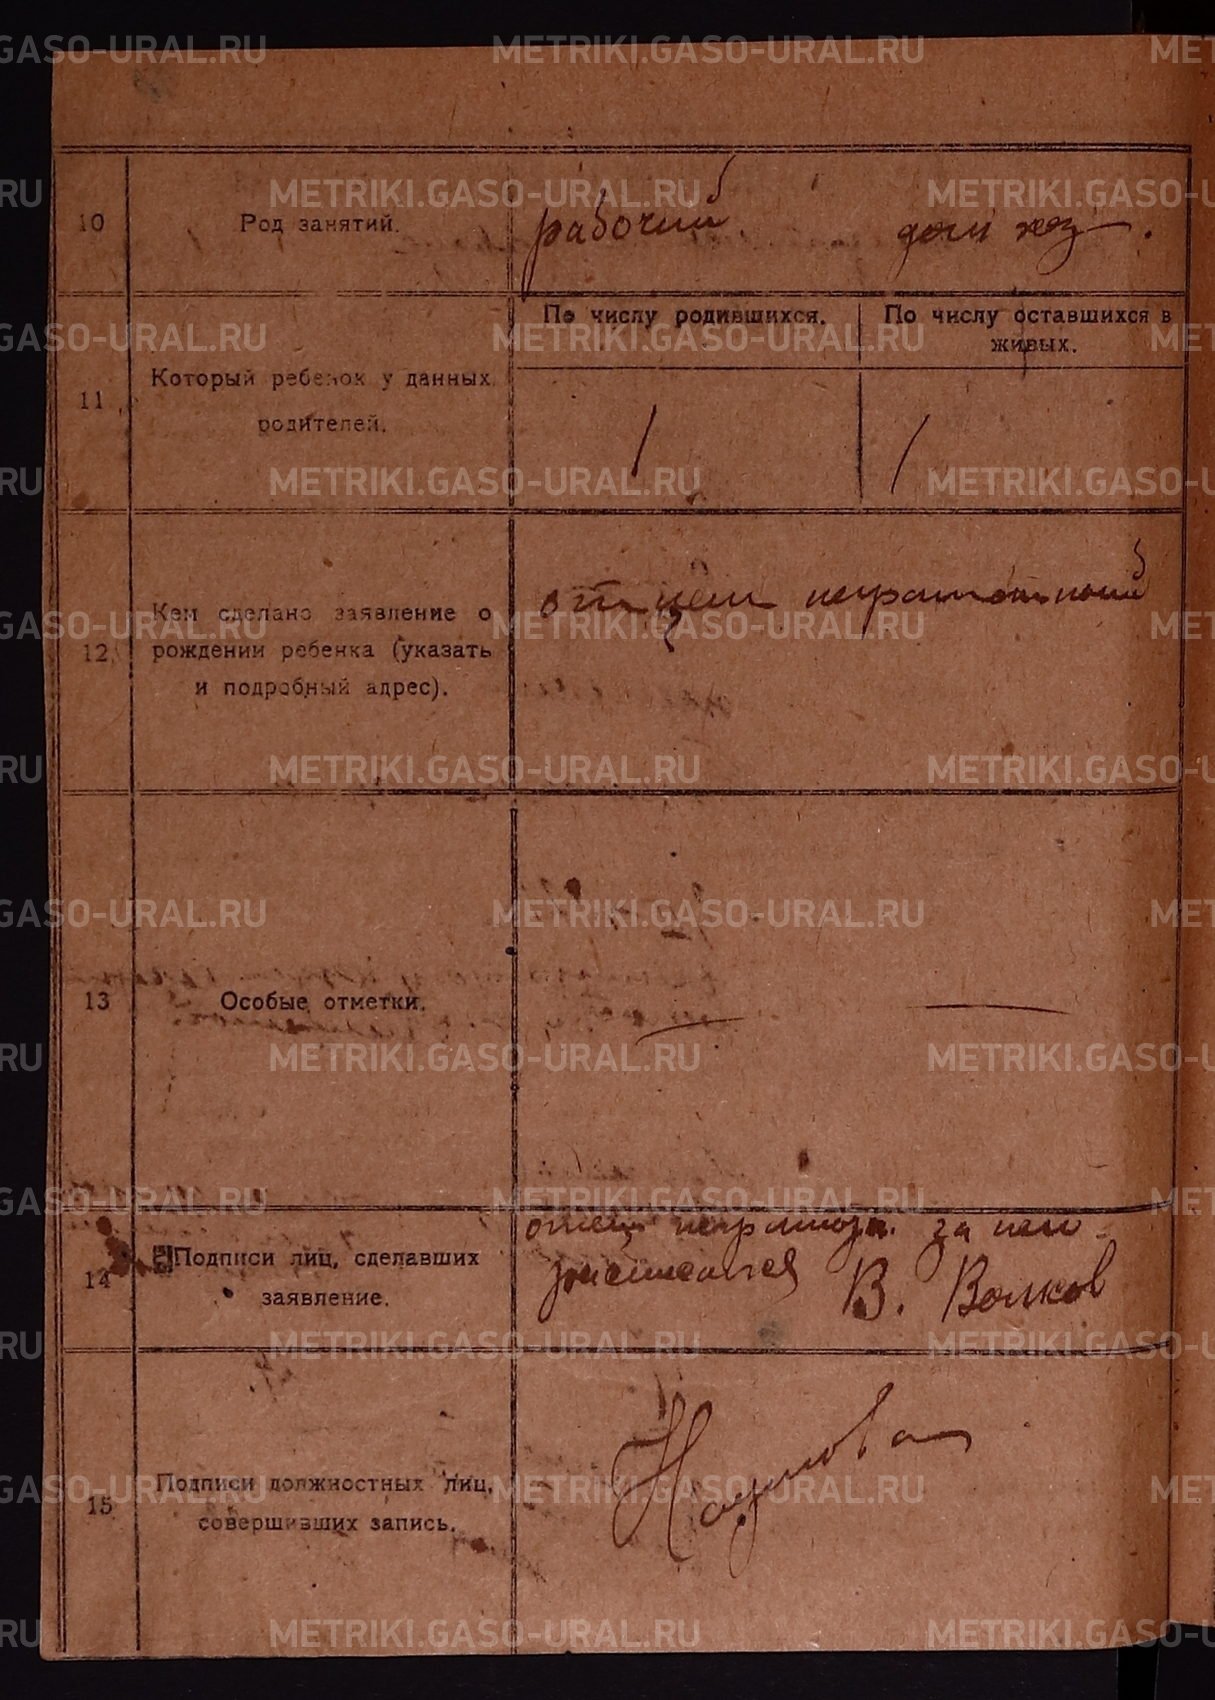 10
Род занятий.
рабочий
дом хоз.
11
Который ребенок у данных
родителей.
По числу родившихся.
По числу оставшихся в
живых.
1
1
12
Кем сделано заявление о
рождении ребенка (указать
и подробный адрес).
отцем неграмотный
13
Особые отметки.
14
Подписи лиц, сделавших
заявление.
отец неграмот. за нем
В. Волков
15
Подписи должностных лиц,
совершивших запись.
METRIKI.GASO-URAL.RU